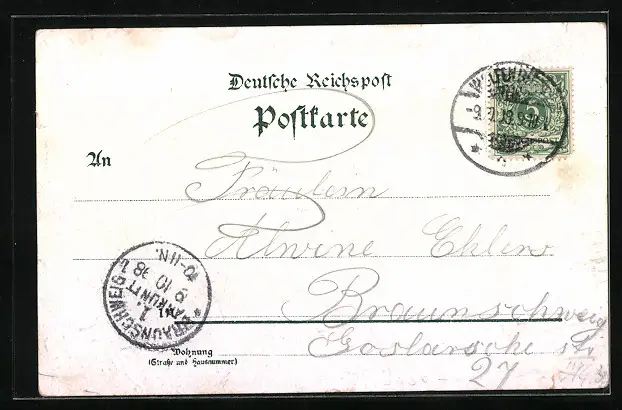 Deutsche Reichspost
Postkarte
An
Fräulein
Alwine Ehlers
Braunschweig
in
Goslarsche str.
27
Wohnung
(Straße und Hausnummer)
BRAUNSCHWEIG
1.
ANKUNFT
9 10 98
10-11 N.